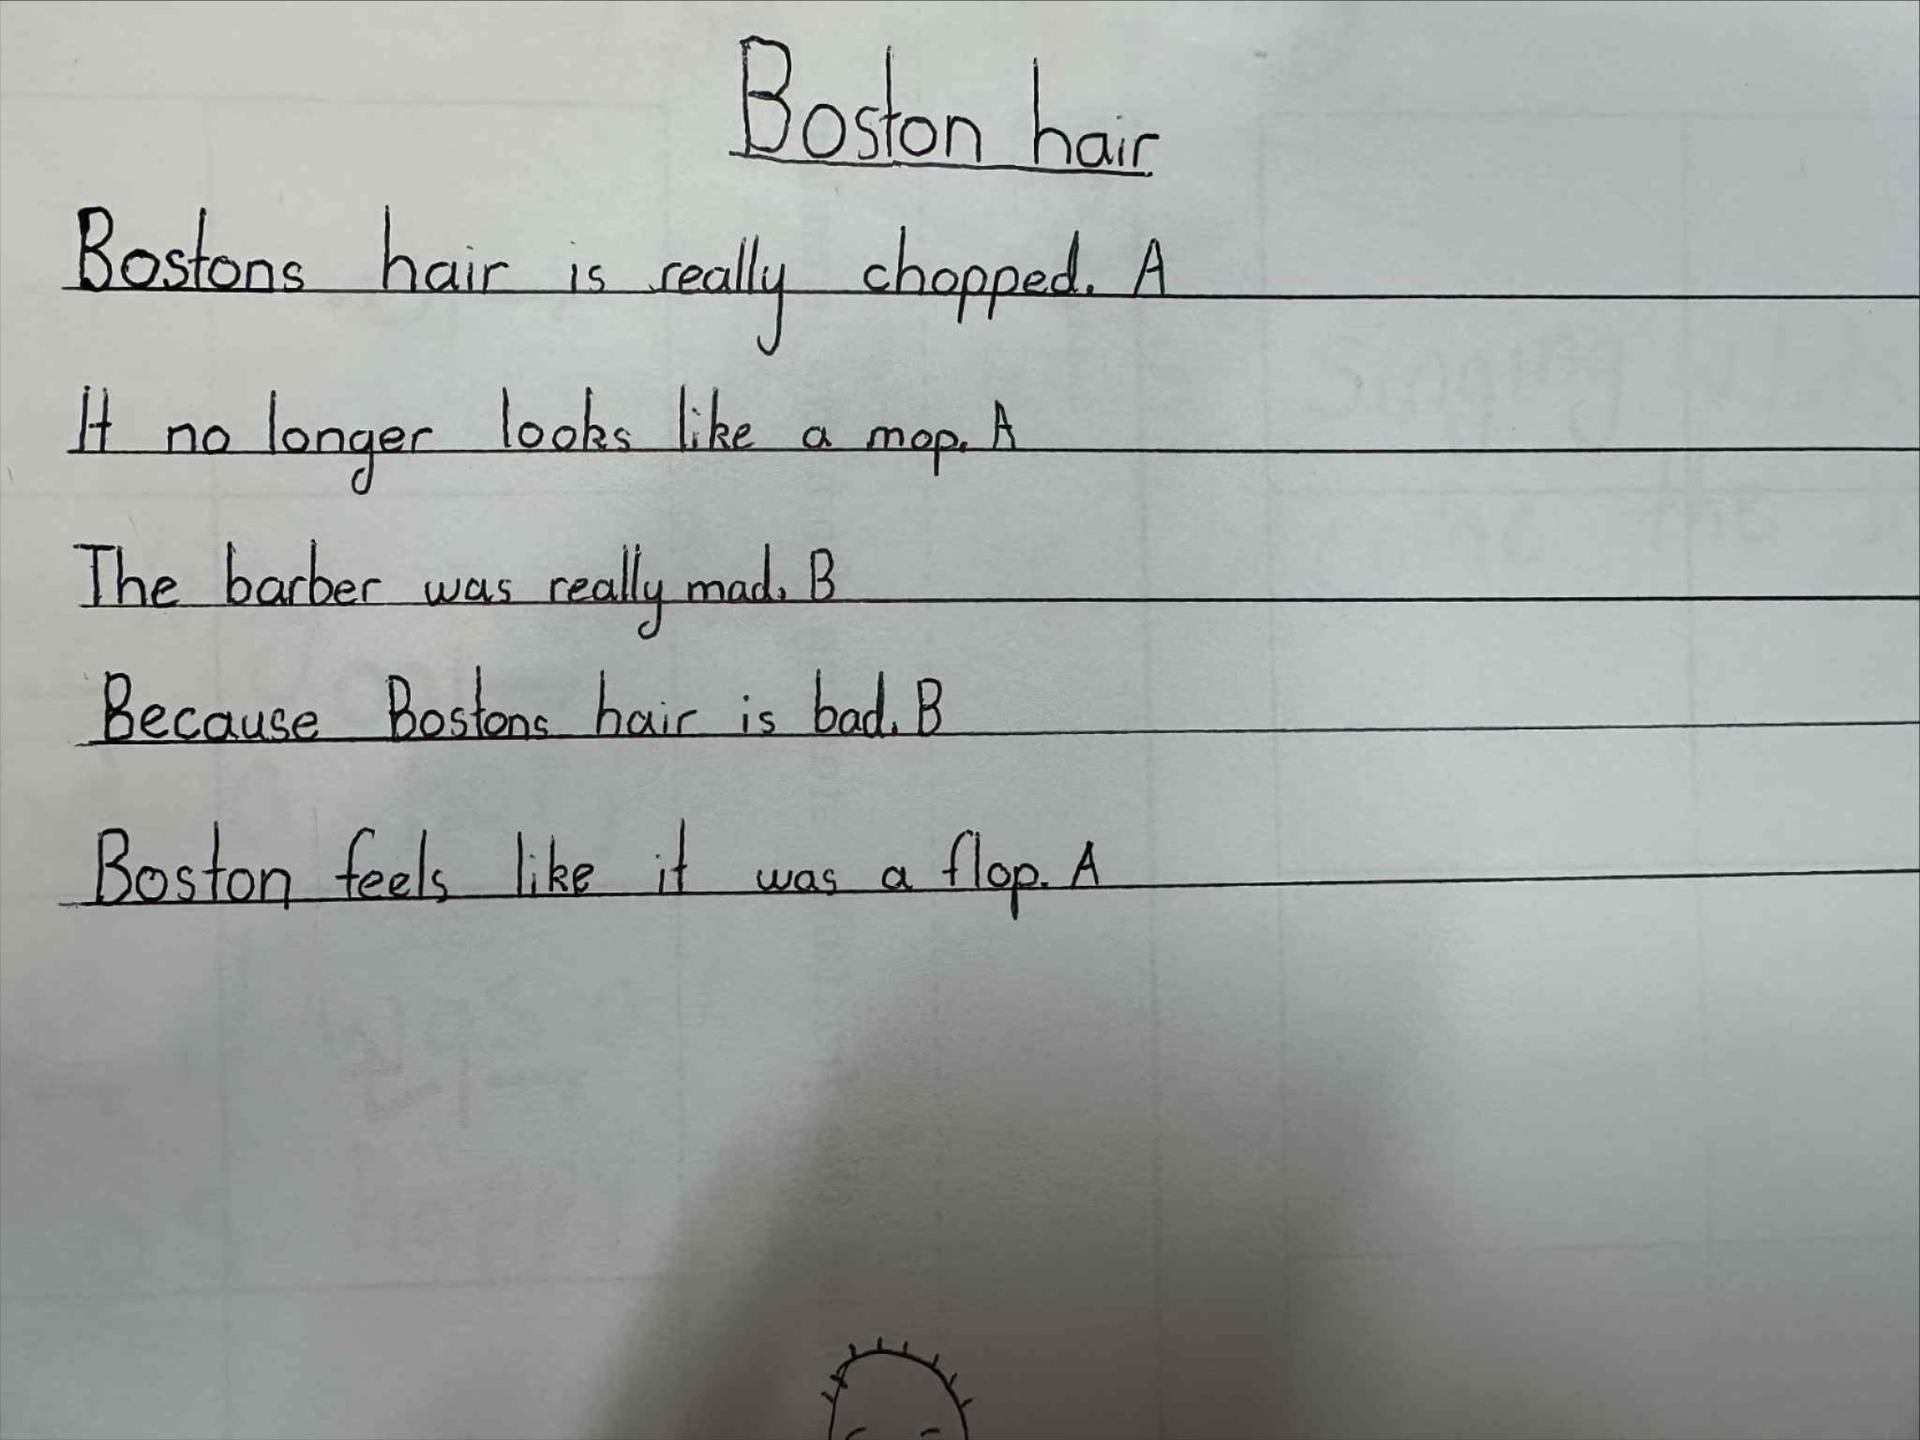 Boston hair
Bostons hair is really chopped. A
It no longer looks like a mop. A
The barber was really mad. B
Because Bostons hair is bad. B
Boston feels like it was a flop. A